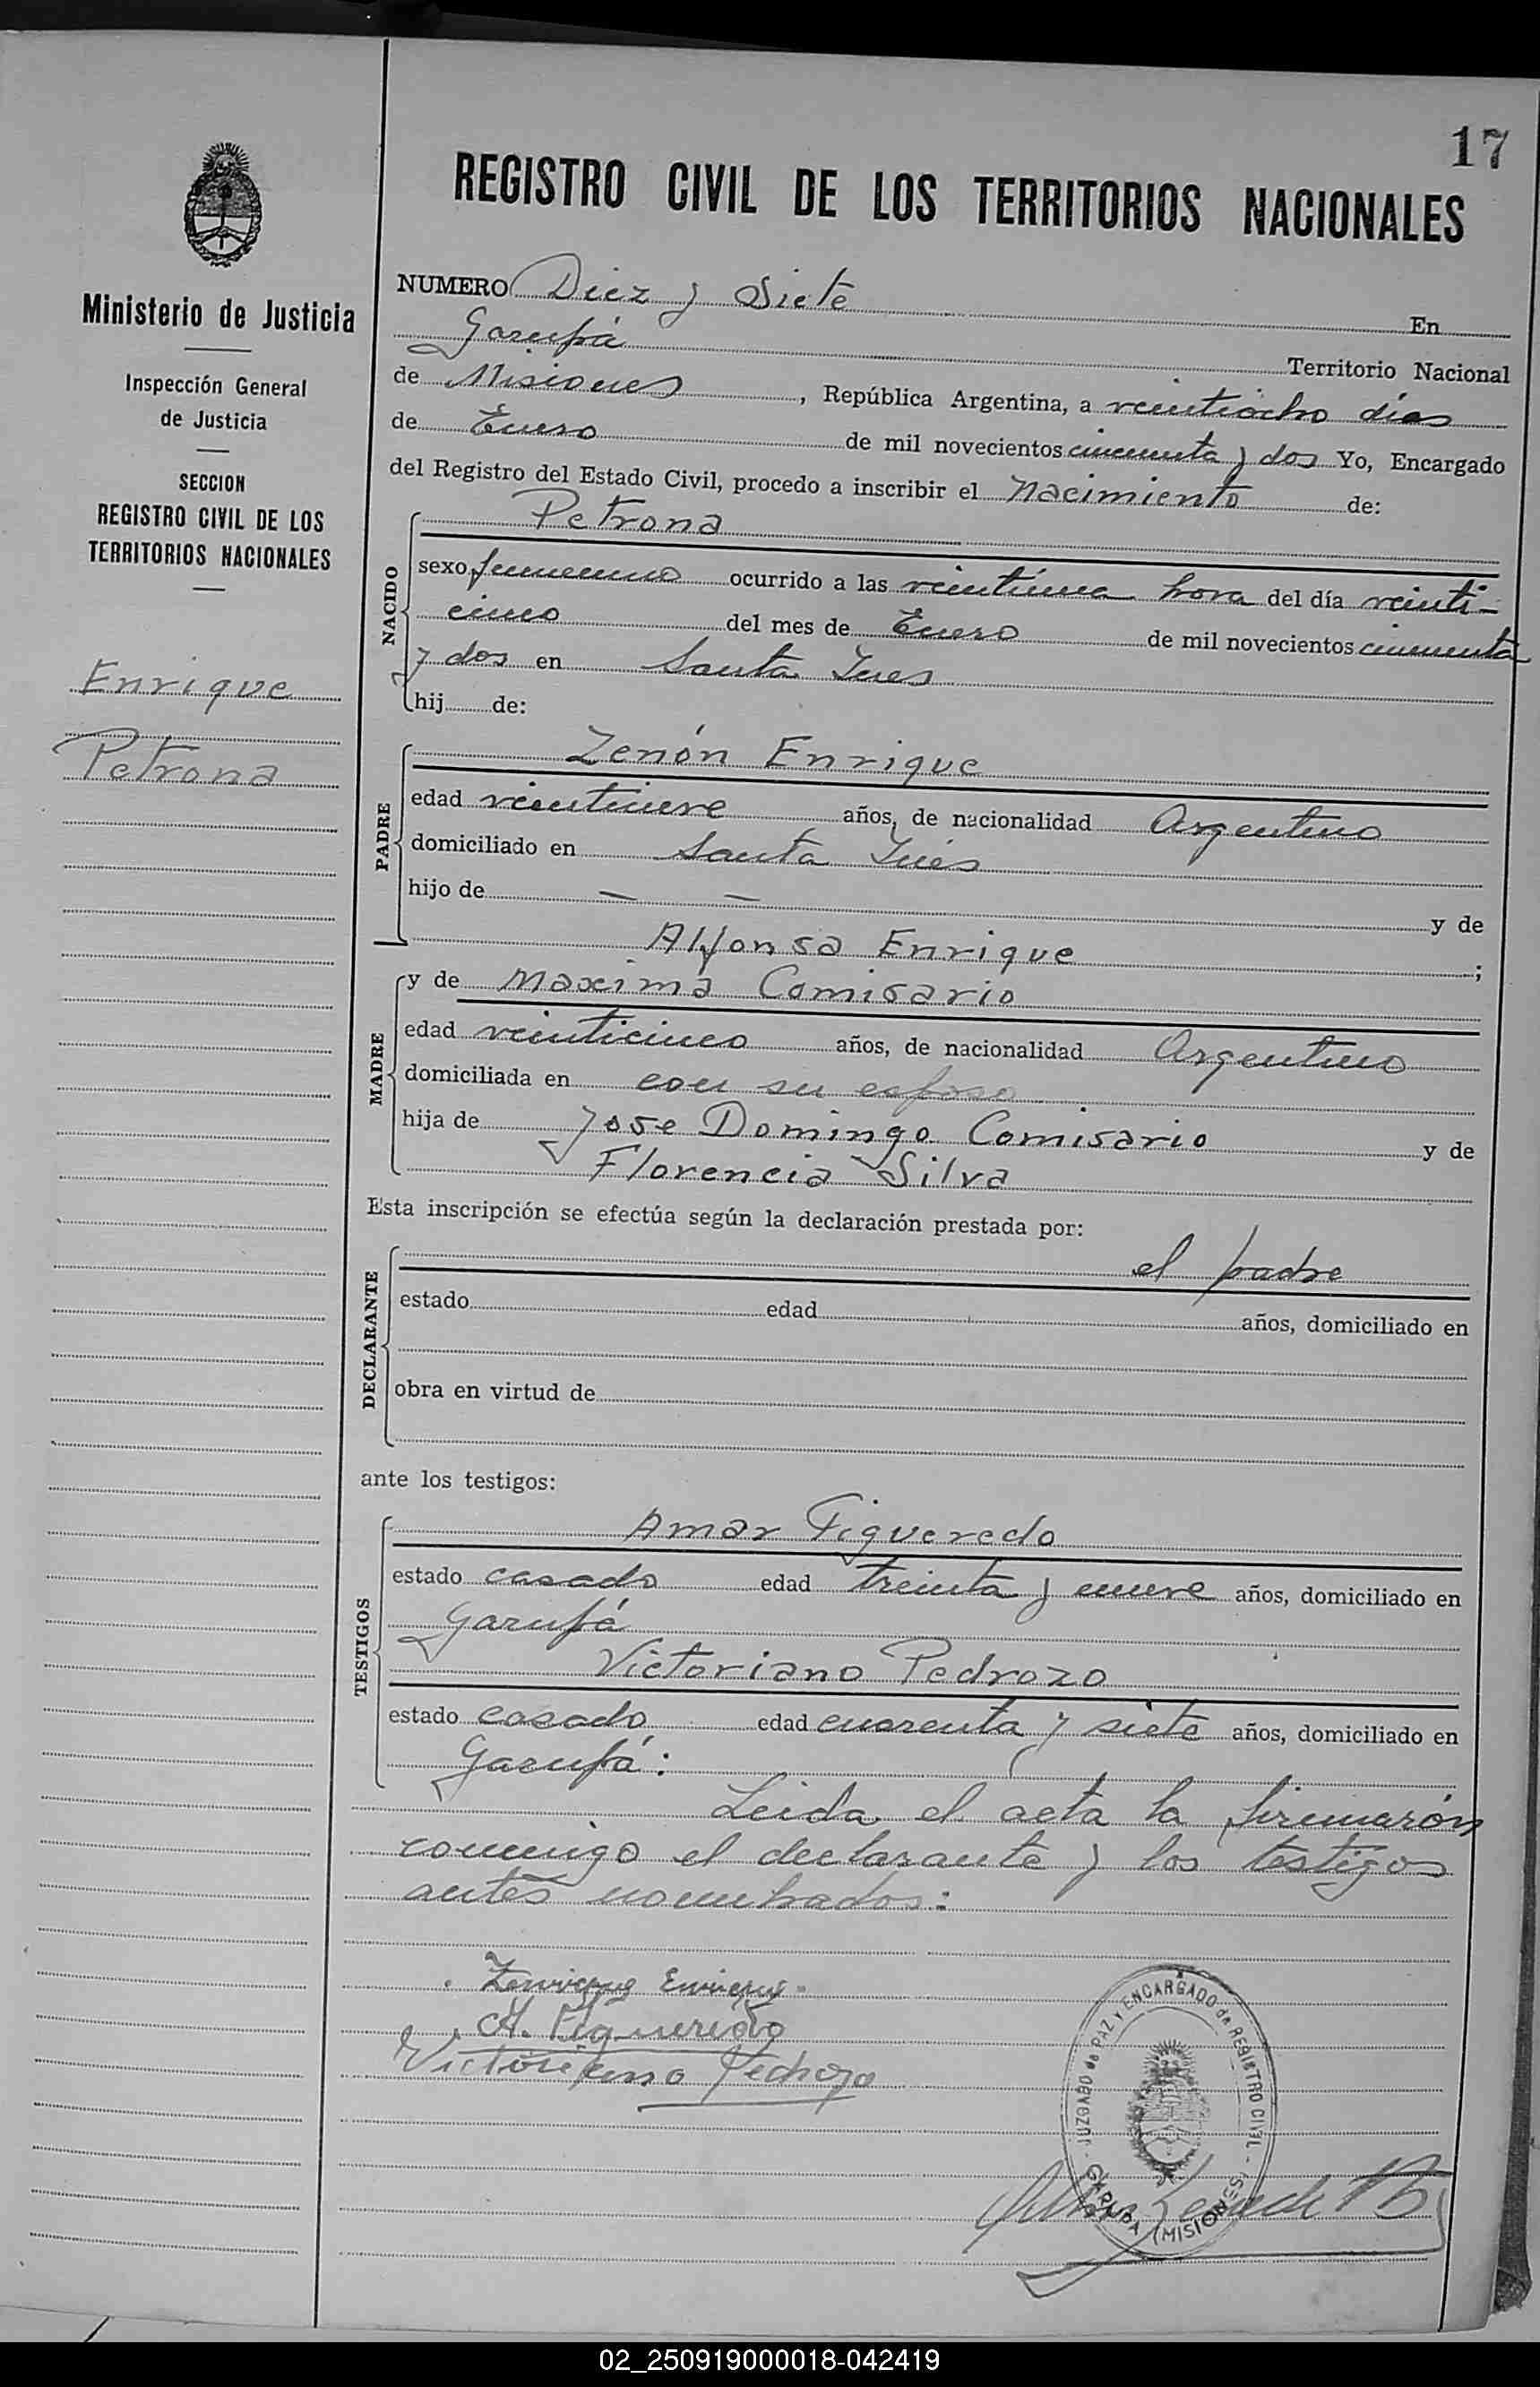 17
REGISTRO CIVIL DE LOS TERRITORIOS NACIONALES
Ministerio de Justicia
Inspección General
de Justicia
SECCION
REGISTRO CIVIL DE LOS
TERRITORIOS NACIONALES
Enrique
Petrona
NUMERO Diez y Siete En
Garupá Territorio Nacional
de Misiones, República Argentina, a veintiocho días
de Enero de mil novecientos cincuenta y dos Yo, Encargado
del Registro del Estado Civil, procedo a inscribir el nacimiento de:
NACIDO
Petrona
sexo femenino ocurrido a las veintiuna hora del día veinti-
cinco del mes de Enero de mil novecientos cincuenta
y dos en Santa Ines
hij de:
PADRE
Zenón Enrique
edad veintinueve años, de nacionalidad Argentino
domiciliado en Santa Inés
hijo de — — y de
Alfonsa Enrique ;
MADRE
y de Maxima Comisario
edad veinticinco años, de nacionalidad Argentino
domiciliada en con su esposo
hija de Jose Domingo Comisario y de
Florencia Silva
Esta inscripción se efectúa según la declaración prestada por:
DECLARANTE
el padre
estado edad años, domiciliado en
obra en virtud de
ante los testigos:
TESTIGOS
Amar Figueredo
estado casado edad treinta y nueve años, domiciliado en
Garupá
Victoriano Pedrozo
estado casado edad cuarenta y siete años, domiciliado en
Garupá:
Leida el acta la firmarón
conmigo el declarante y los testigos
antes nombrados:
Enrique
A. Figueredo
Victoriano Pedrozo
JUZGADO de PAZ Y ENCARGADO de REGISTRO CIVIL
GARUPA (MISIONES)
02_250919000018-042419